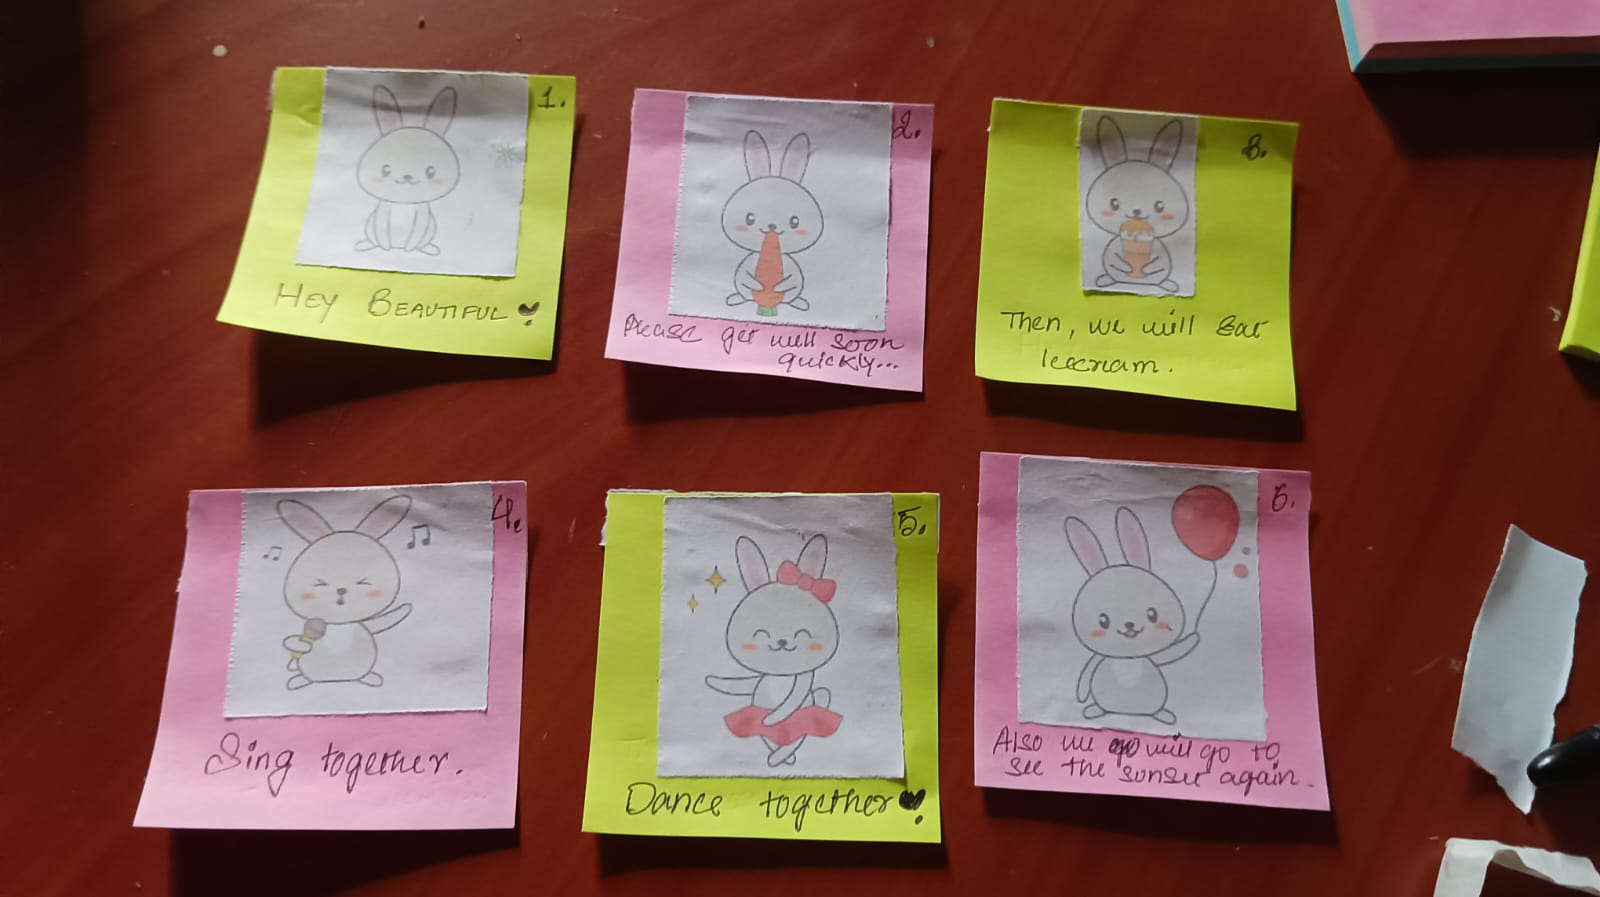 1.
HEY BEAUTIFUL
2.
Please get well soon
quickly...
3.
Then, we will Eat
Icecream.
4.
Sing together.
5.
Dance together
6.
Also we go will go to
see the sunset again.